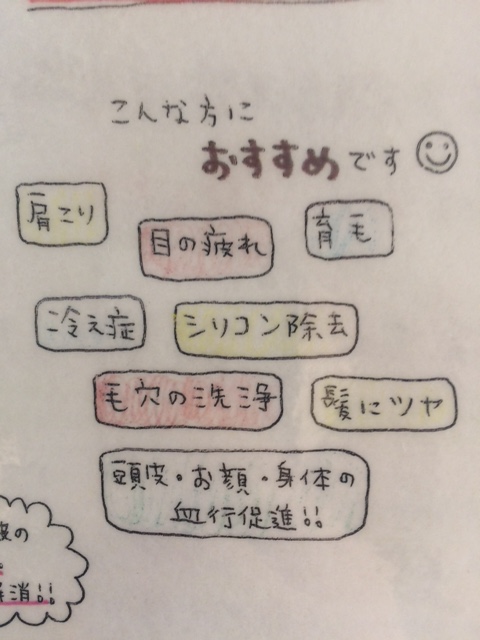 こんな方に
おすすめです
肩こり
目の疲れ
育毛
冷え症
シリコン除去
毛穴の洗浄
髪にツヤ
頭皮・お顔・身体の
血行促進!!
の
消!!